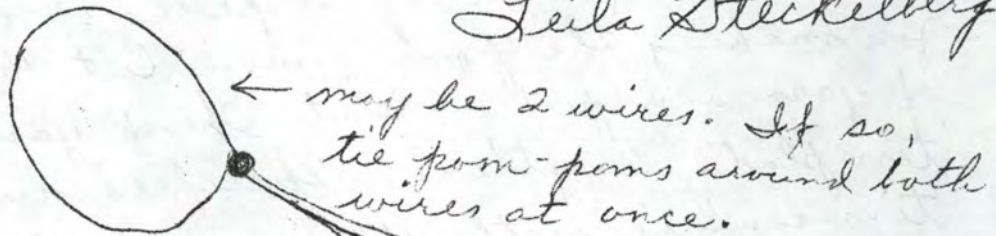 Leila Steckelberg
← may be 2 wires. If so,
tie pom-poms around both
wires at once.